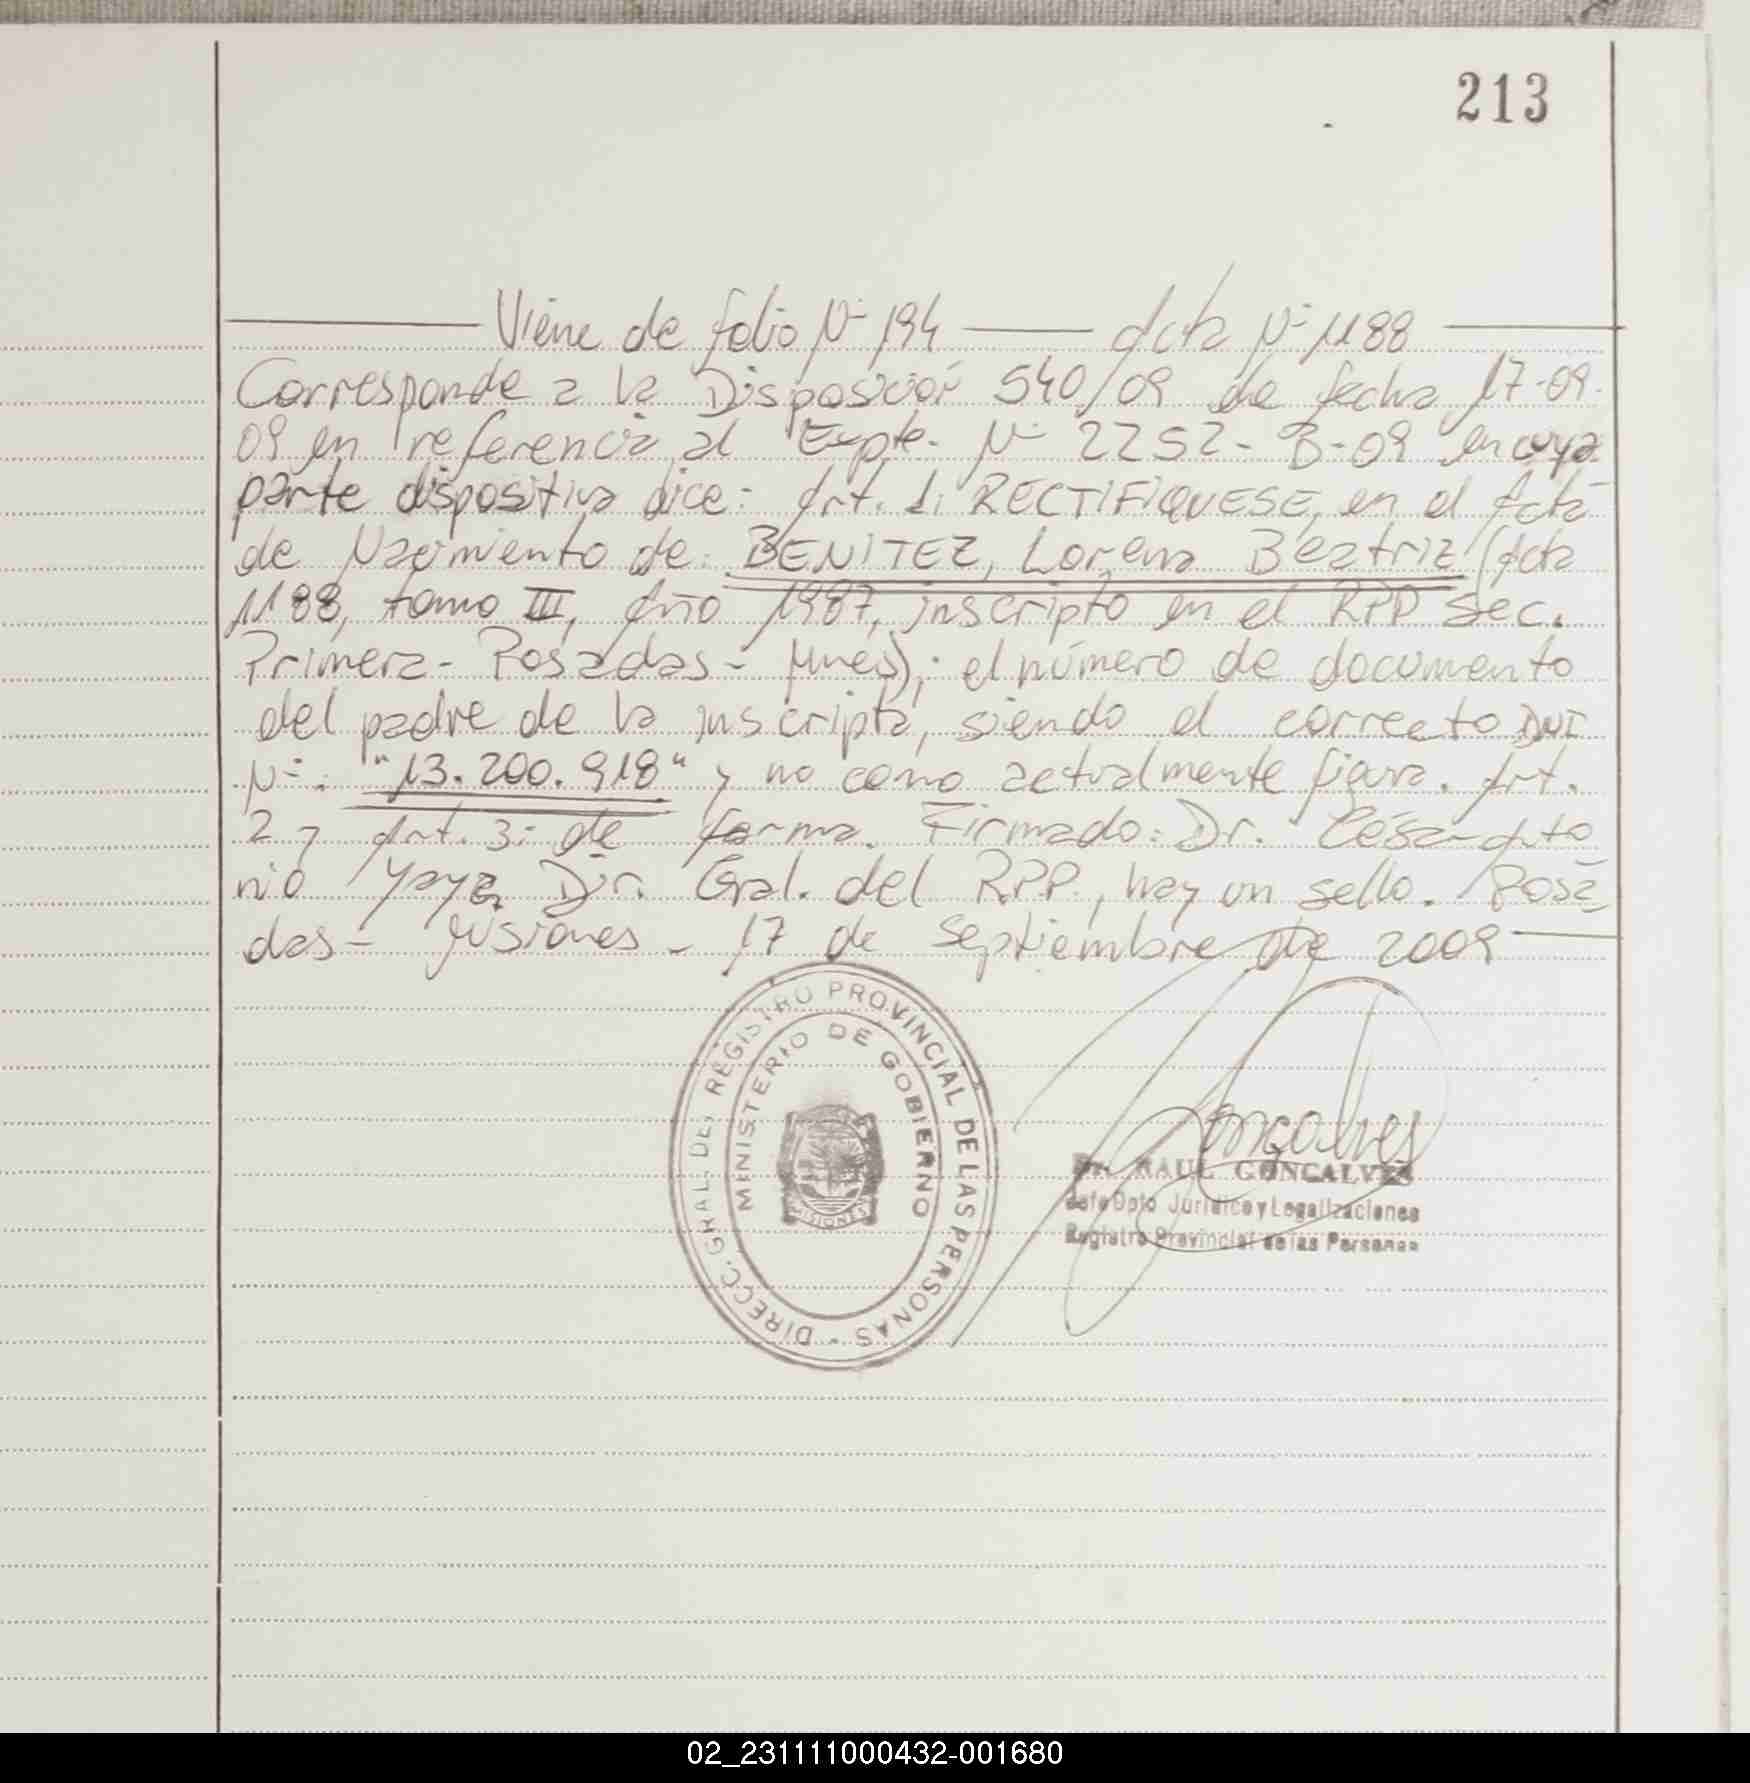 213
Viene de folio Nº 194 — Acta Nº 1188
Corresponde a la Disposición 540/09 de fecha 17-09-
09 en referencia al Expte. Nº 2252-B-09 en cuya
parte dispositiva dice: Art. 1: RECTIFIQUESE, en el Acta
de Nacimiento de: BENITEZ, Lorena Beatriz (Acta
1188, tomo III, Año 1987, inscripto en el RPP Sec.
Primera- Posadas- Mnes); el número de documento
del padre de la inscripta, siendo el correcto DNI
Nº: "13.200.918" y no como actualmente figura. Art.
2 y Art. 3: de forma. Firmado: Dr. César Anto
nio Yaya, Dir. Gral. del R.P.P., hay un sello. Posa
das- Misiones- 17 de Septiembre de 2009
DIRECC. GRAL. DEL REGISTRO PROVINCIAL DE LAS PERSONAS -
MINISTERIO DE GOBIERNO
MISIONES
Goncalves
Dr. RAUL GONCALVES
Jefe Dpto Jurídico y Legalizaciones
Registro Provincial de las Personas
02_231111000432-001680